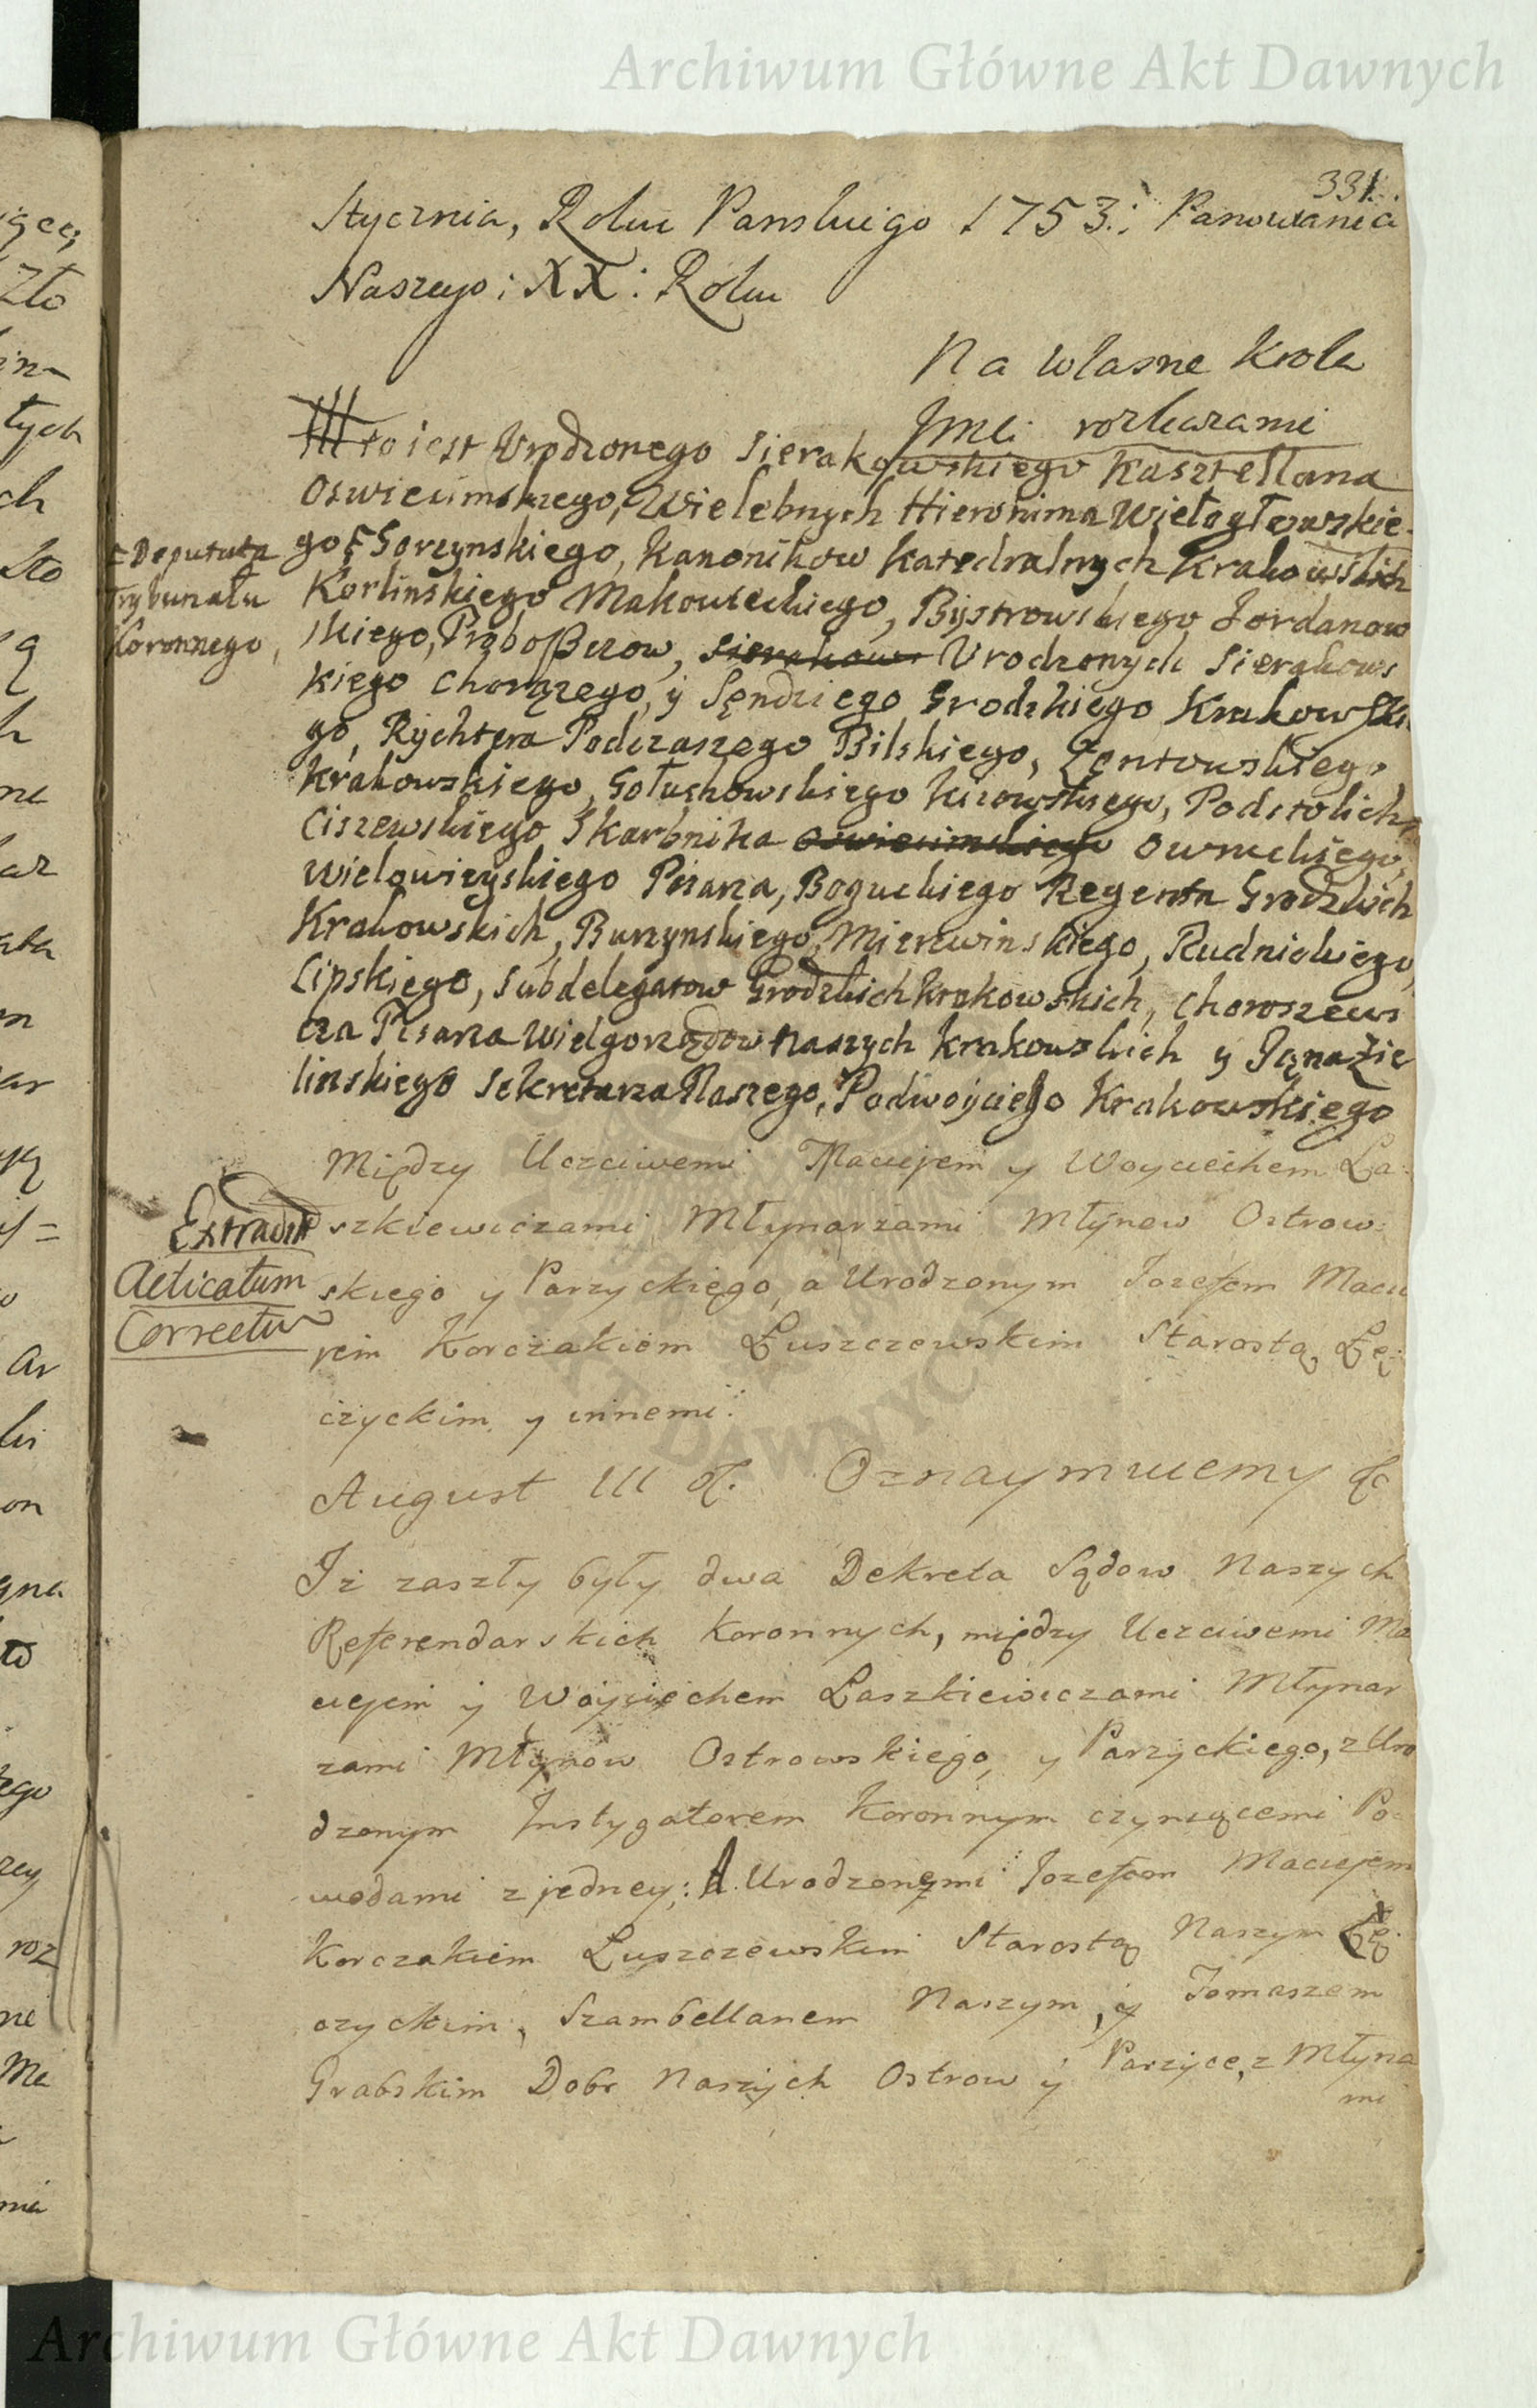 Archiwum Główne Akt Dawnych
331.
Stycznia, Roku Panskiego 1753: Panowania
Naszego: XX: Roku
Na własne Krola
Jmci rozkazanie
to iest Vrodzonego Sierakowskiego Kasztellana
Oswiecimskiego, Wielebnych Hieronima Wielogłowskie-
go Ⱶ Gorzynskiego, Kanonikow Katedralnych Krakowskich
Ⱶ Deputata
Trybunału
Koronnego,
Korlinskiego Makowieckiego, Bystrowskiego Jordanow
skiego, Proboszczow, Vrodzonych Sierakows
kiego Chorązego, y Sęndziego Grodzkiego Krakowskie
go, Rychtera Podczaszego Bilskiego, Zentowskiego
Krakowskiego, Gołuchowskiego Kiiowskiego, Podstolich
Ciszewskiego Skarbnika Owruckiego,
Wielowieyskiego Pisarza, Boguckiego Regenta Grodzkich
Krakowskich, Burzynskiego, Mierzwinskiego, Rudnickiego,
Lipskiego, Subdelegatow Grodzkich Krakowskich, Choroszews
cza Pisarza Wielgorządow Naszych Krakowskich y Ignaż Zie
linskiego Sekretarza Naszego, Podwoyciego Krakowskiego
Między Uczciwemi Maciejem y Woyciechem Ła-
Extradit
Acticatum
Correctum
szkiewiczami Młynarzami Młynow Ostrow-
skiego y Parzyckiego, a Urodzonym Jozefem Macie
jem Korczakiem Łuszczewskim Starostą Łę-
czyckim y innemi.
August III &. Oznaymuiemy &c
Iż zaszły były dwa Dekreta Sądow Naszych
Referendarskich Koronnych, między Uczciwemi Ma
ciejem y Woyciechem Łaszkiewiczami Młynar
zami Młynow Ostrowskiego, y Parzyckiego, z Uro
dzonym Instygatorem Koronnym czyniącemi Po-
wodami z jedney: A Urodzonymi Jozefem Maciejem
Korczakiem Łuszczewskim Starostą Naszym Łę-
czyckim, Szambellanem Naszym, y Tomaszem
Grabskim Dobr Naszych Ostrow y Parzyce, z Młyna
mi
Archiwum Główne Akt Dawnych